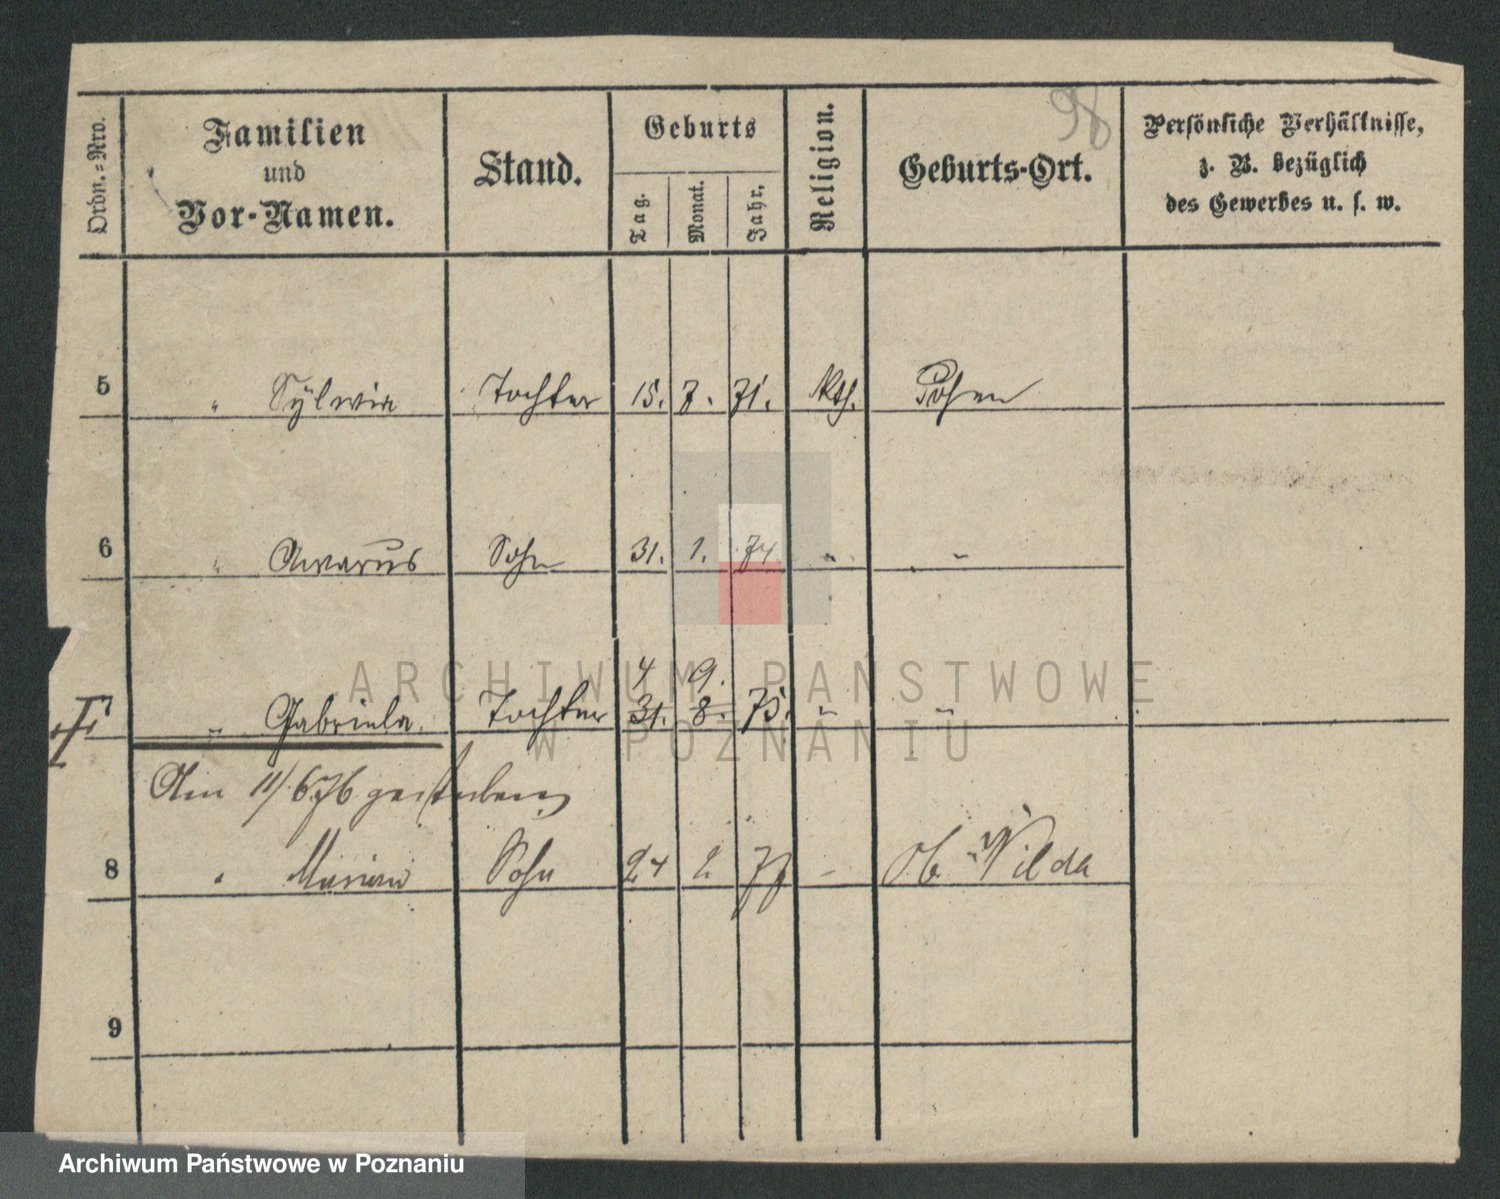 98
Ordn.=Nro.
Familien
und
Vor-Namen.
Stand.
Geburts
Tag.
Monat.
Jahr.
Religion.
Geburts-Ort.
Persönliche Verhältnisse,
z. B. bezüglich
des Gewerbes u. s. w.
5 " Sylwia Tochter 15. 7. 71. Kth. Posen
6 " Sohn 31. 1. 74. " "
4 9.
7 " Gabriela. Tochter 31. 8. 75. " "
Am 11/6 76 gestorben
8 " Marian Sohn 24 2 77 " Ob. Wilda
9
ARCHIWUM PAŃSTWOWE
W POZNANIU
Archiwum Państwowe w Poznaniu